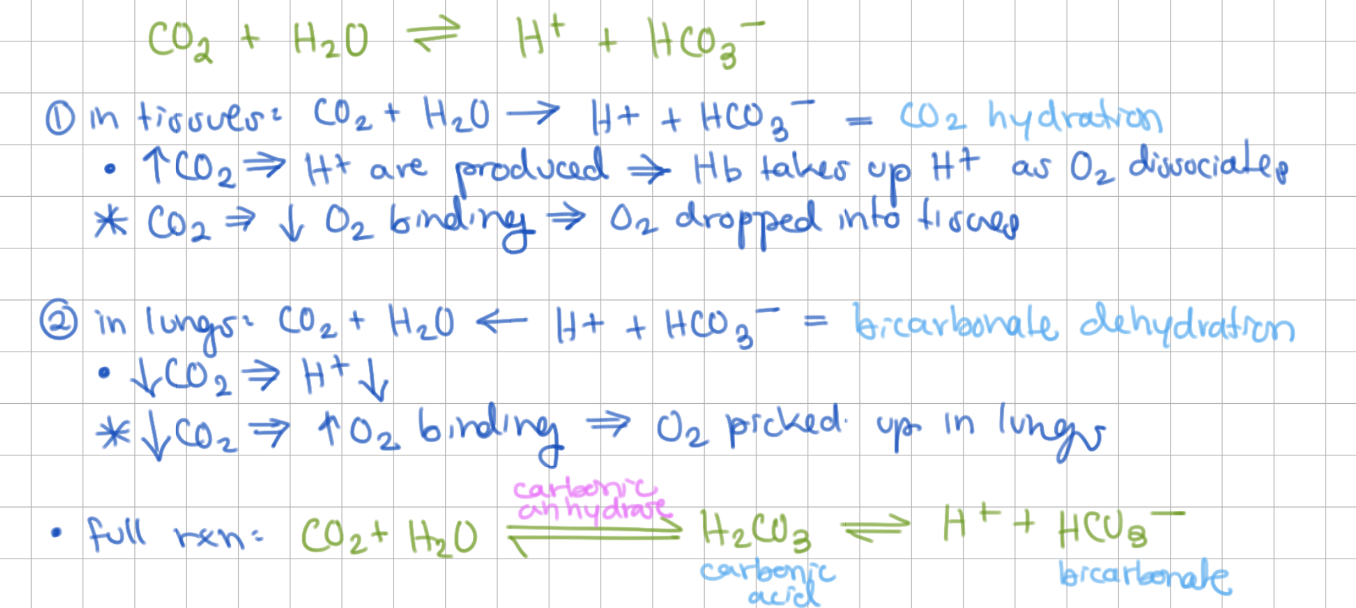 CO₂ + H₂O ⇌ H⁺ + HCO₃⁻
① in tissues: CO₂ + H₂O → H+ + HCO₃⁻ = CO₂ hydration
• ↑CO₂ ⇒ H⁺ are produced ⇒ Hb takes up H⁺ as O₂ dissociates
* CO₂ ⇒ ↓ O₂ binding ⇒ O₂ dropped into tissues
② in lungs: CO₂ + H₂O ← H+ + HCO₃⁻ = bicarbonate dehydration
• ↓CO₂ ⇒ H⁺↓
* ↓CO₂ ⇒ ↑O₂ binding ⇒ O₂ picked up in lungs
carbonic
anhydrase
• full rxn: CO₂ + H₂O ⇌ H₂CO₃ ⇌ H⁺ + HCO₃⁻
carbonic acid
bicarbonate